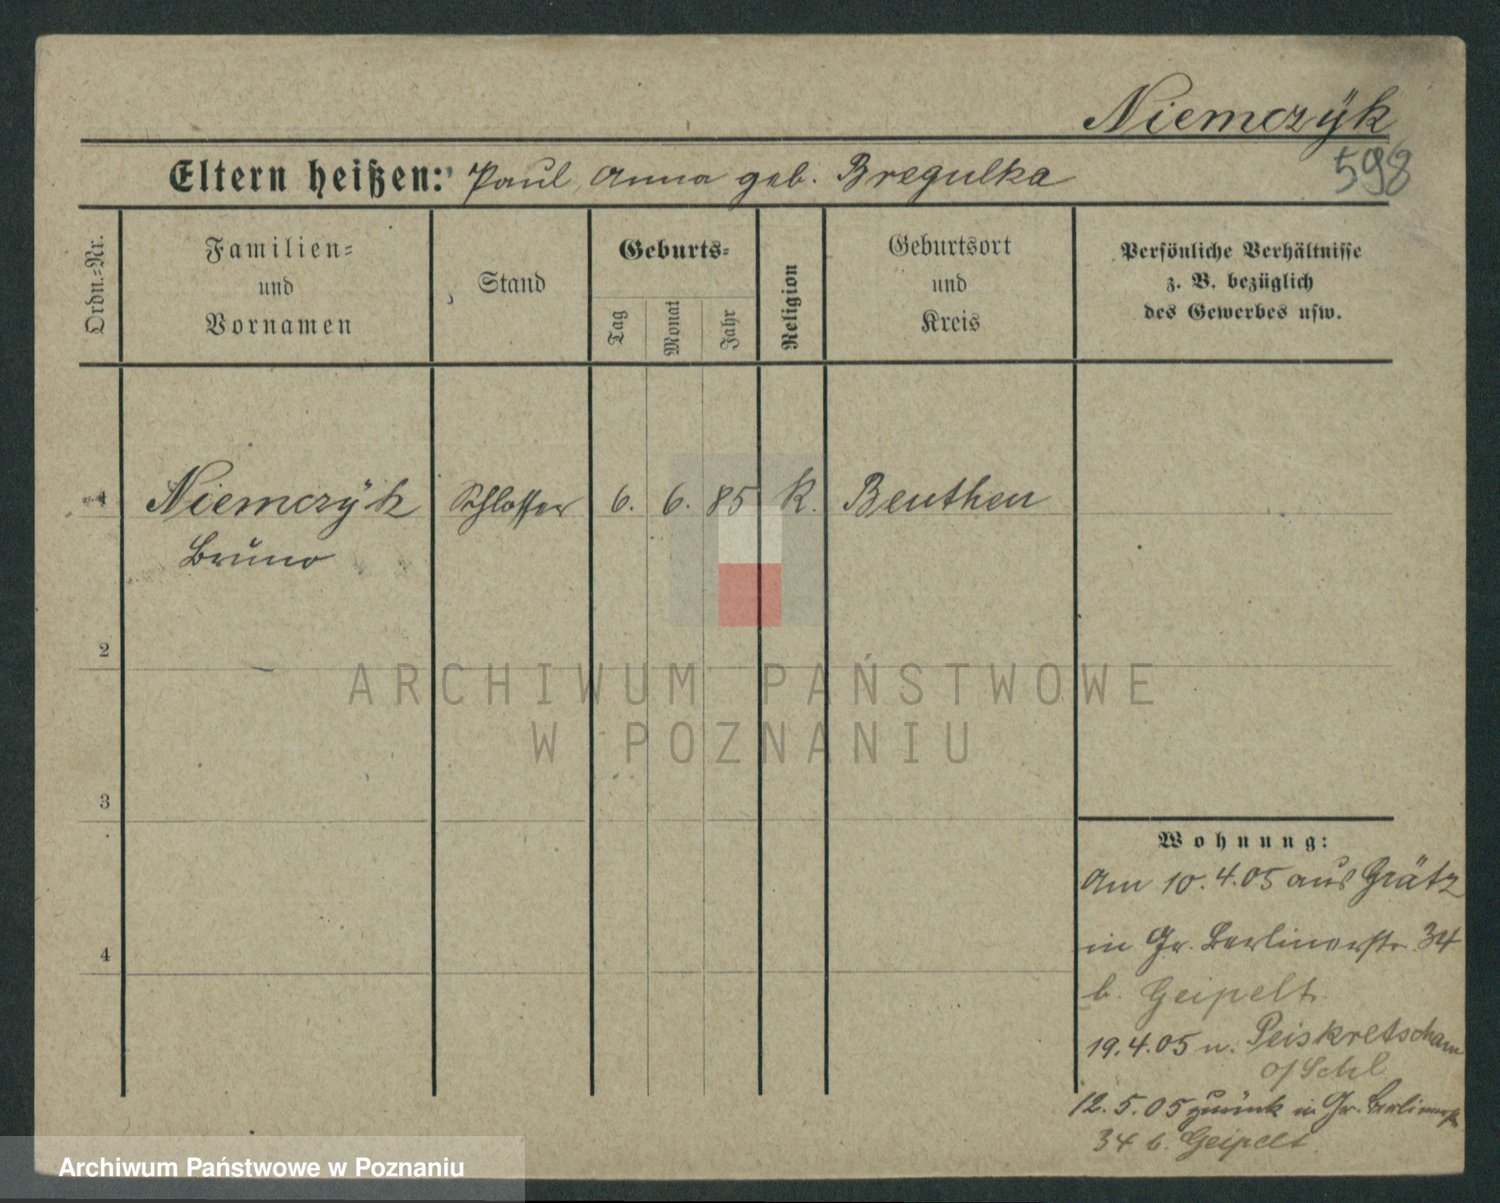 Niemczÿk
598
Eltern heißen: Paul, Anna geb. Bregulka
Ordn.=Nr.
Familien=
und
Vornamen
Stand
Geburts=
Tag
Monat
Jahr
Religion
Geburtsort
und
Kreis
Persönliche Verhältnisse
z. B. bezüglich
des Gewerbes usw.
1 Niemczÿk Schlosser 6. 6. 85 K. Beuthen
Bruno
2
3
4
Wohnung:
Am 10.4.05 aus Grätz
in Gr. Berlinerstr. 34
b. Geipelt
19.4.05 n. Peiskretscham
o/Schl
12.5.05 zurück in Gr. Berlinerstr
34 b. Geipelt
ARCHIWUM PAŃSTWOWE
W POZNANIU
Archiwum Państwowe w Poznaniu